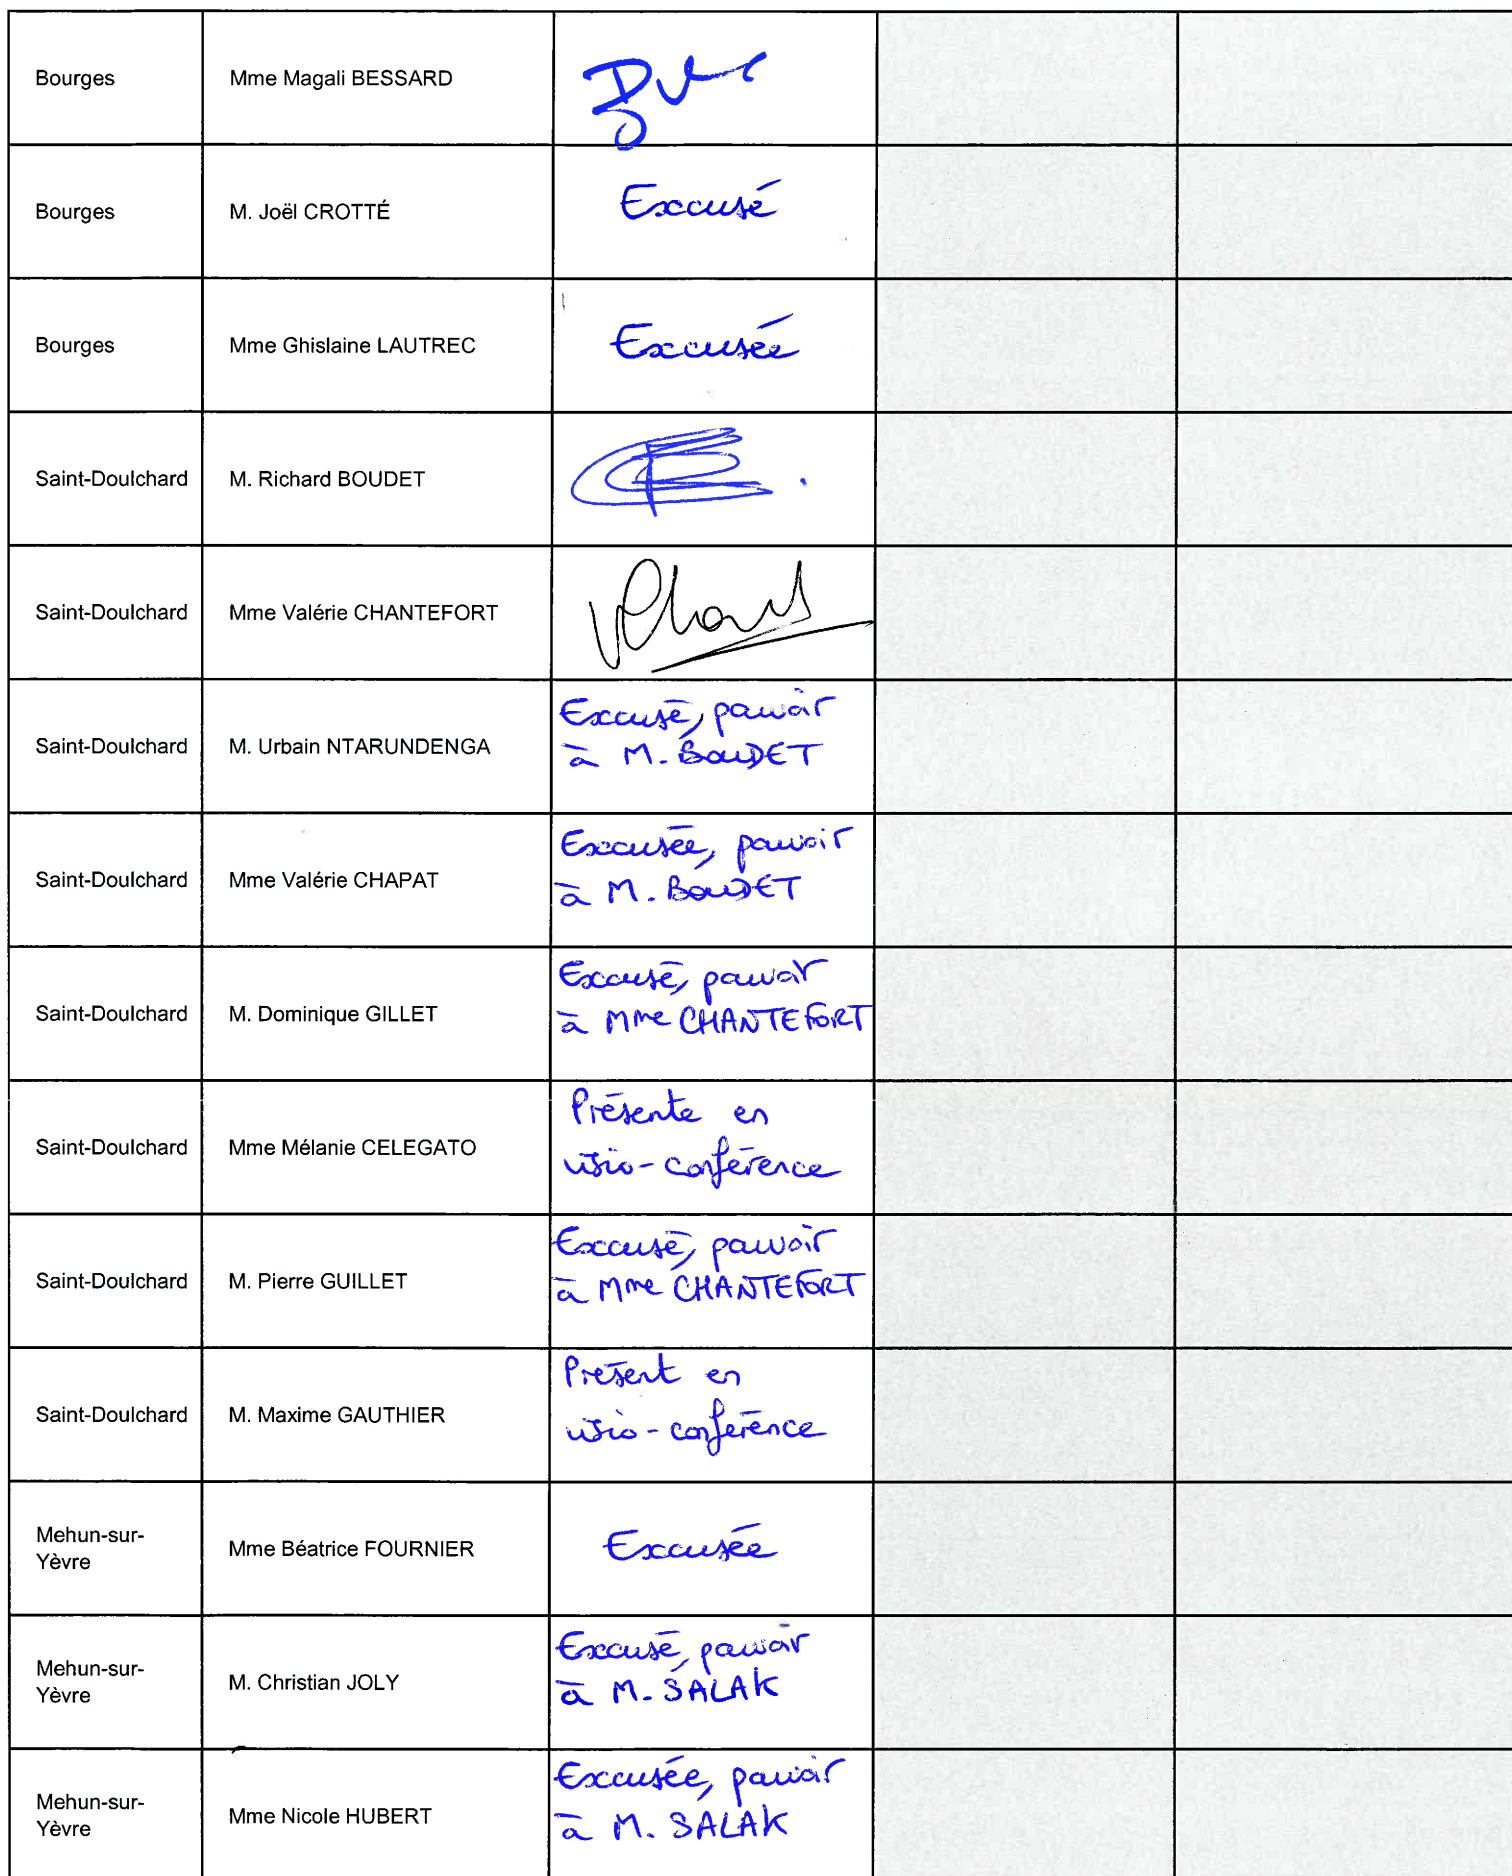 Bourges
Mme Magali BESSARD
Bourges
M. Joël CROTTÉ
Excusé
Bourges
Mme Ghislaine LAUTREC
Excusée
Saint-Doulchard
M. Richard BOUDET
Saint-Doulchard
Mme Valérie CHANTEFORT
Saint-Doulchard
M. Urbain NTARUNDENGA
Excusé, pouvoir
à M. BOUDET
Saint-Doulchard
Mme Valérie CHAPAT
Excusée, pouvoir
à M. BOUDET
Saint-Doulchard
M. Dominique GILLET
Excusé, pouvoir
à Mme CHANTEFORT
Saint-Doulchard
Mme Mélanie CELEGATO
Présente en
visio-conférence
Saint-Doulchard
M. Pierre GUILLET
Excusé, pouvoir
à Mme CHANTEFORT
Saint-Doulchard
M. Maxime GAUTHIER
Présent en
visio-conférence
Mehun-sur-
Yèvre
Mme Béatrice FOURNIER
Excusée
Mehun-sur-
Yèvre
M. Christian JOLY
Excusé, pouvoir
à M. SALAK
Mehun-sur-
Yèvre
Mme Nicole HUBERT
Excusée, pouvoir
à M. SALAK